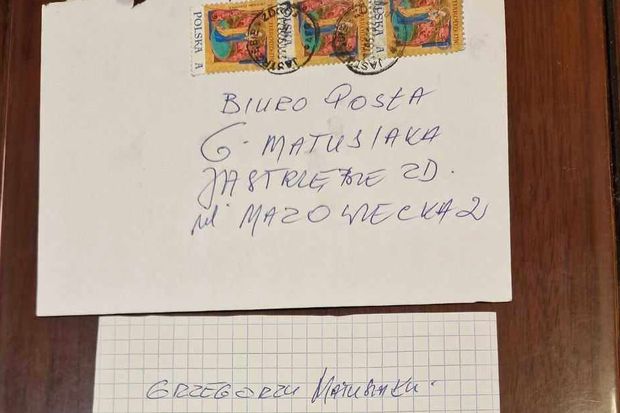 POLSKA A
POLSKA
POLSKA A
BIURO POSŁA
G. MATUSIAKA
JASTRZĘBIE ZD.
ul MAZOWIECKA 2
GRZEGORZU MATUSIAKU.